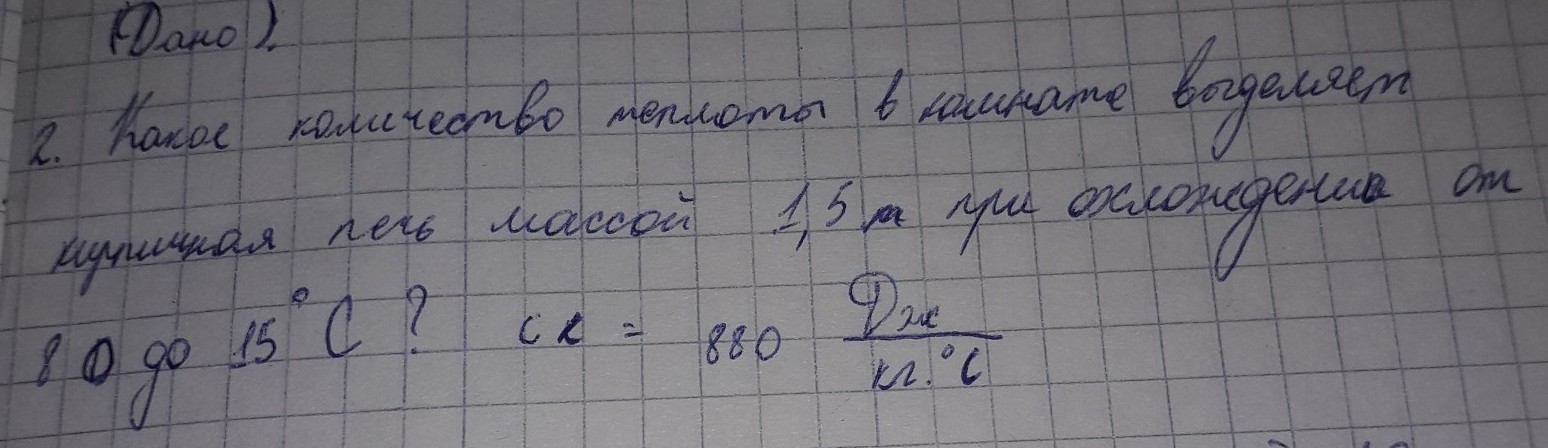 (Дано).
2. Какое количество теплоты в комнате выделяет
кирпичная печь массой 1,5 т при охлождении от
80 до 15°С? cк = 880 Дж/кг.°С